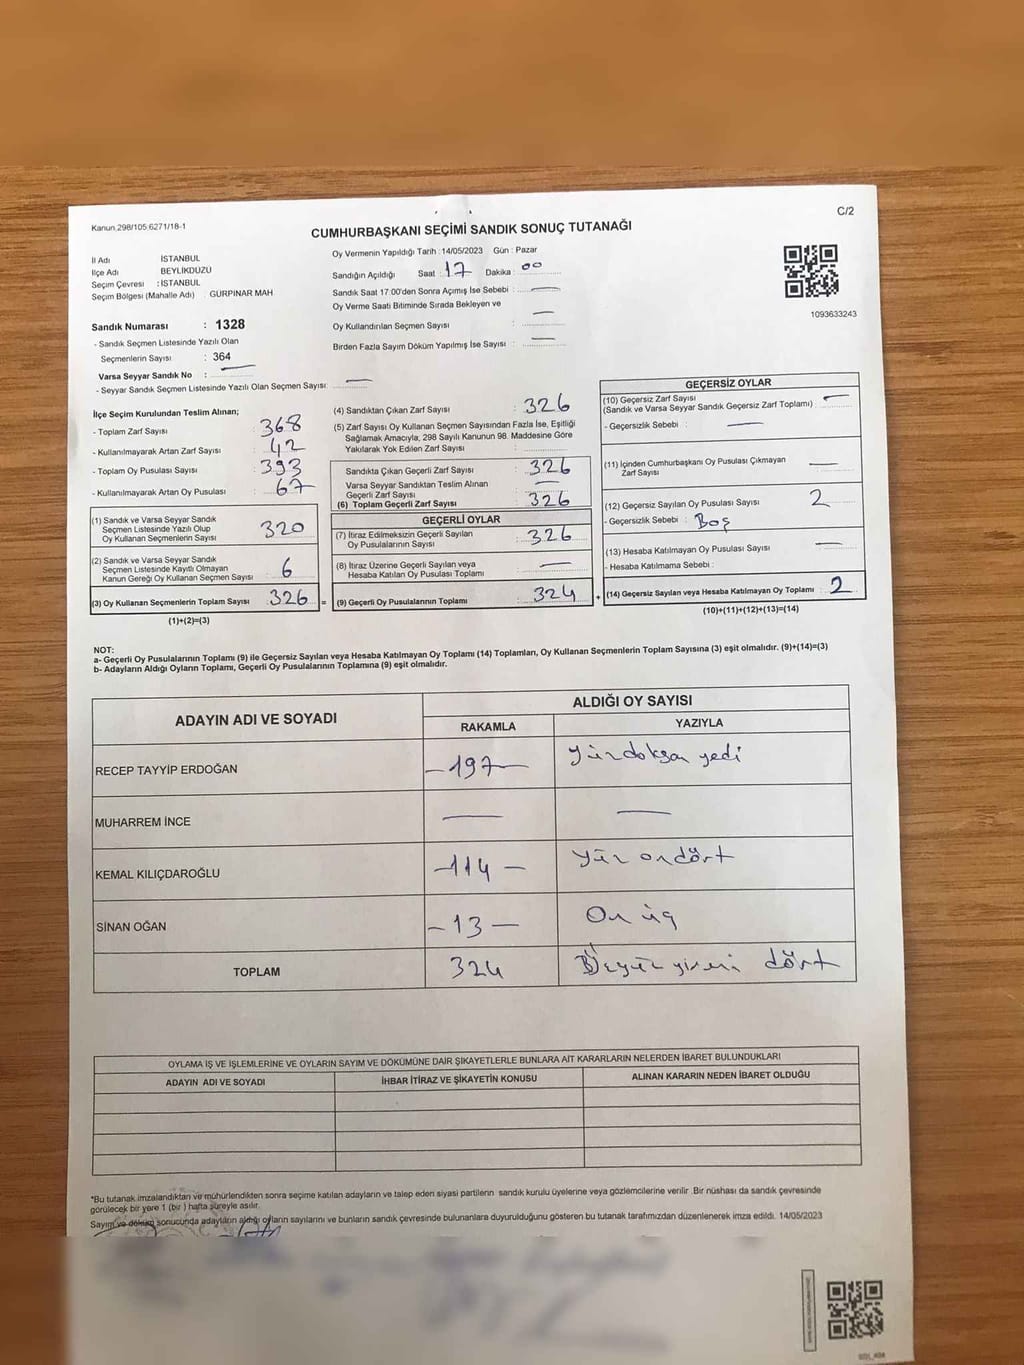 C/2
Kanun,298/105,6271/18-1
CUMHURBAŞKANI SEÇİMİ SANDIK SONUÇ TUTANAĞI
İl Adı İSTANBUL
İlçe Adı BEYLİKDÜZÜ
Seçim Çevresi : İSTANBUL
Seçim Bölgesi (Mahalle Adı) : GÜRPINAR MAH
Sandık Numarası : 1328
- Sandık Seçmen Listesinde Yazılı Olan
Seçmenlerin Sayısı : 364
Varsa Seyyar Sandık No : —
- Seyyar Sandık Seçmen Listesinde Yazılı Olan Seçmen Sayısı: —
Oy Vermenin Yapıldığı Tarih :14/05/2023 Gün : Pazar
Sandığın Açıldığı Saat : 17 Dakika : 00
Sandık Saat 17:00'den Sonra Açılmış İse Sebebi : —
Oy Verme Saati Bitiminde Sırada Bekleyen ve
Oy Kullandırılan Seçmen Sayısı : —
Birden Fazla Sayım Döküm Yapılmış İse Sayısı : —
1093633243
İlçe Seçim Kurulundan Teslim Alınan;
- Toplam Zarf Sayısı : 368
- Kullanılmayarak Artan Zarf Sayısı : 42
- Toplam Oy Pusulası Sayısı : 393
- Kullanılmayarak Artan Oy Pusulası : 67
(1) Sandık ve Varsa Seyyar Sandık
Seçmen Listesinde Yazılı Olup
Oy Kullanan Seçmenlerin Sayısı : 320
(2) Sandık ve Varsa Seyyar Sandık
Seçmen Listesinde Kayıtlı Olmayan
Kanun Gereği Oy Kullanan Seçmen Sayısı : 6
(3) Oy Kullanan Seçmenlerin Toplam Sayısı : 326 =
(1)+(2)=(3)
(4) Sandıktan Çıkan Zarf Sayısı : 326
(5) Zarf Sayısı Oy Kullanan Seçmen Sayısından Fazla İse, Eşitliği
Sağlamak Amacıyla, 298 Sayılı Kanunun 98. Maddesine Göre
Yakılarak Yok Edilen Zarf Sayısı
Sandıkta Çıkan Geçerli Zarf Sayısı : 326
Varsa Seyyar Sandıktan Teslim Alınan
Geçerli Zarf Sayısı : —
(6) Toplam Geçerli Zarf Sayısı : 326
GEÇERLİ OYLAR
(7) İtiraz Edilmeksizin Geçerli Sayılan
Oy Pusulalarının Sayısı : 326
(8) İtiraz Üzerine Geçerli Sayılan veya
Hesaba Katılan Oy Pusulası Toplamı : —
(9) Geçerli Oy Pusulalarının Toplamı : 324 +
GEÇERSİZ OYLAR
(10) Geçersiz Zarf Sayısı
(Sandık ve Varsa Seyyar Sandık Geçersiz Zarf Toplamı) : —
- Geçersizlik Sebebi : —
(11) İçinden Cumhurbaşkanı Oy Pusulası Çıkmayan
Zarf Sayısı : —
(12) Geçersiz Sayılan Oy Pusulası Sayısı : 2
- Geçersizlik Sebebi : Boş
(13) Hesaba Katılmayan Oy Pusulası Sayısı : —
- Hesaba Katılmama Sebebi :
(14) Geçersiz Sayılan veya Hesaba Katılmayan Oy Toplamı : 2
(10)+(11)+(12)+(13)=(14)
NOT:
a- Geçerli Oy Pusulalarının Toplamı (9) ile Geçersiz Sayılan veya Hesaba Katılmayan Oy Toplamı (14) Toplamları, Oy Kullanan Seçmenlerin Toplam Sayısına (3) eşit olmalıdır. (9)+(14)=(3)
b- Adayların Aldığı Oyların Toplamı, Geçerli Oy Pusulalarının Toplamına (9) eşit olmalıdır.
ADAYIN ADI VE SOYADI
ALDIĞI OY SAYISI
RAKAMLA YAZIYLA
RECEP TAYYİP ERDOĞAN —197— yüzdoksan yedi
MUHARREM İNCE — —
KEMAL KILIÇDAROĞLU —114— yüz ondört
SİNAN OĞAN —13— On üç
TOPLAM 324 dört
OYLAMA İŞ VE İŞLEMLERİNE VE OYLARIN SAYIM VE DÖKÜMÜNE DAİR ŞİKAYETLERLE BUNLARA AİT KARARLARIN NELERDEN İBARET BULUNDUKLARI
ADAYIN ADI VE SOYADI İHBAR İTİRAZ VE ŞİKAYETİN KONUSU ALINAN KARARIN NEDEN İBARET OLDUĞU
*Bu tutanak imzalandıktan ve mühürlendikten sonra seçime katılan adayların ve talep eden siyasi partilerin sandık kurulu üyelerine veya gözlemcilerine verilir .Bir nüshası da sandık çevresinde
görülecek bir yere 1 (bir ) hafta süreyle asılır.
Sayım ve döküm sonucunda adayların aldığı oyların sayılarını ve bunların sandık çevresinde bulunanlara duyurulduğunu gösteren bu tutanak tarafımızdan düzenlenerek imza edildi. 14/05/2023